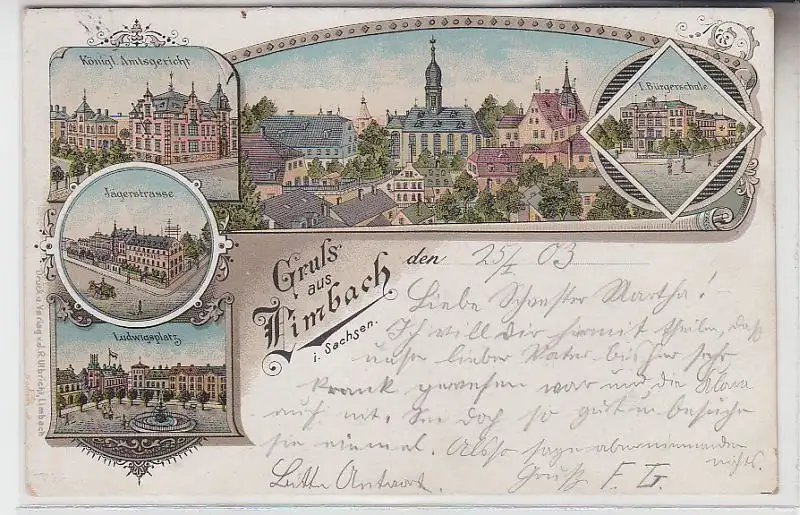 Königl. Amtsgericht
I. Bürgerschule
Jägerstrasse
Ludwigsplatz
Gruss
aus
Limbach
i. Sachsen.
den 25/I 03
Liebe Schwester Martha!
Ich will dir hiermit theilen, daß
unser lieber Vater bisher sehr
krank gewesen war und die Klara
auch mit. Sei doch so gut u besuche
sie einmal. Also sage aber niemanden
nichts.
Bitte Antwort. Gruß F. G.
Druck u Verlag v. R. Ulbricht, Limbach